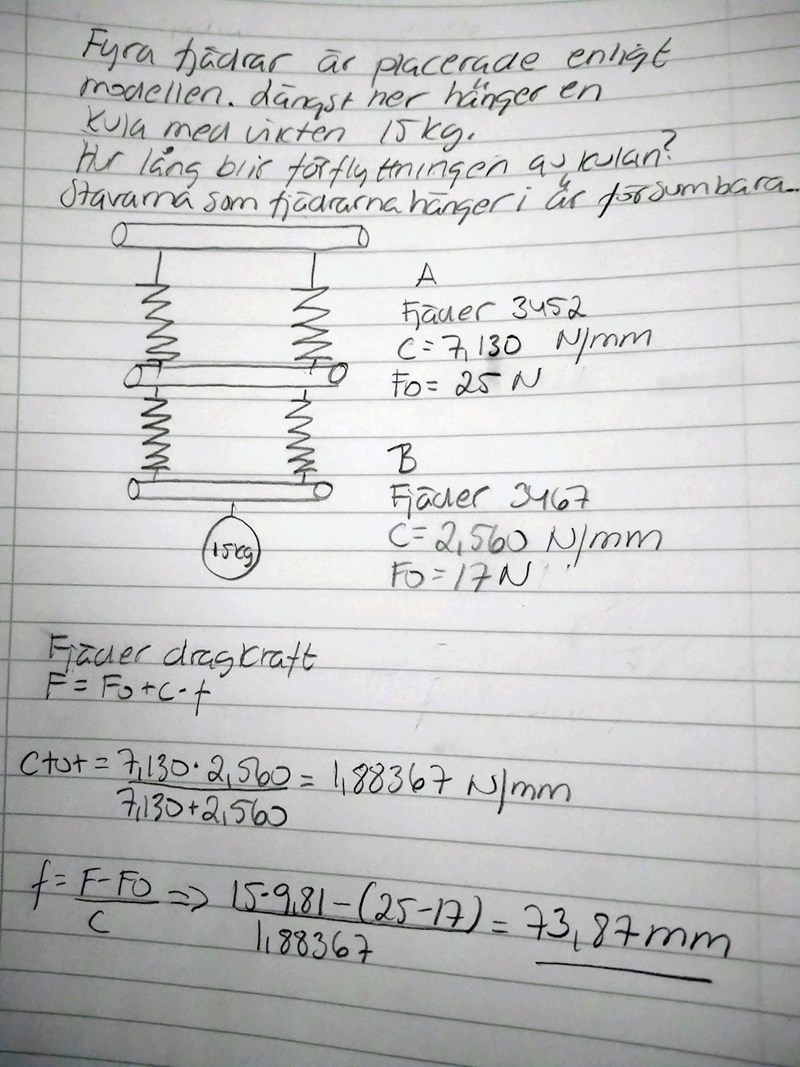 Fyra fjädrar är placerade enligt
modellen. Längst ner hänger en
kula med vikten 15 kg.
Hur lång blir förflyttningen av kulan?
Stavarna som fjädrarna hänger i är försumbara.
A
Fjäder 3452
C = 7,130 N/mm
Fo = 25 N
B
Fjäder 3467
C = 2,560 N/mm
Fo = 17 N
15 kg
Fjäder dragkraft
F = Fo + C · f
Ctot = 7,130 · 2,560 / 7,130 + 2,560 = 1,88367 N/mm
f = F - Fo / C => 15 · 9,81 - (25 - 17) / 1,88367 = 73,87 mm